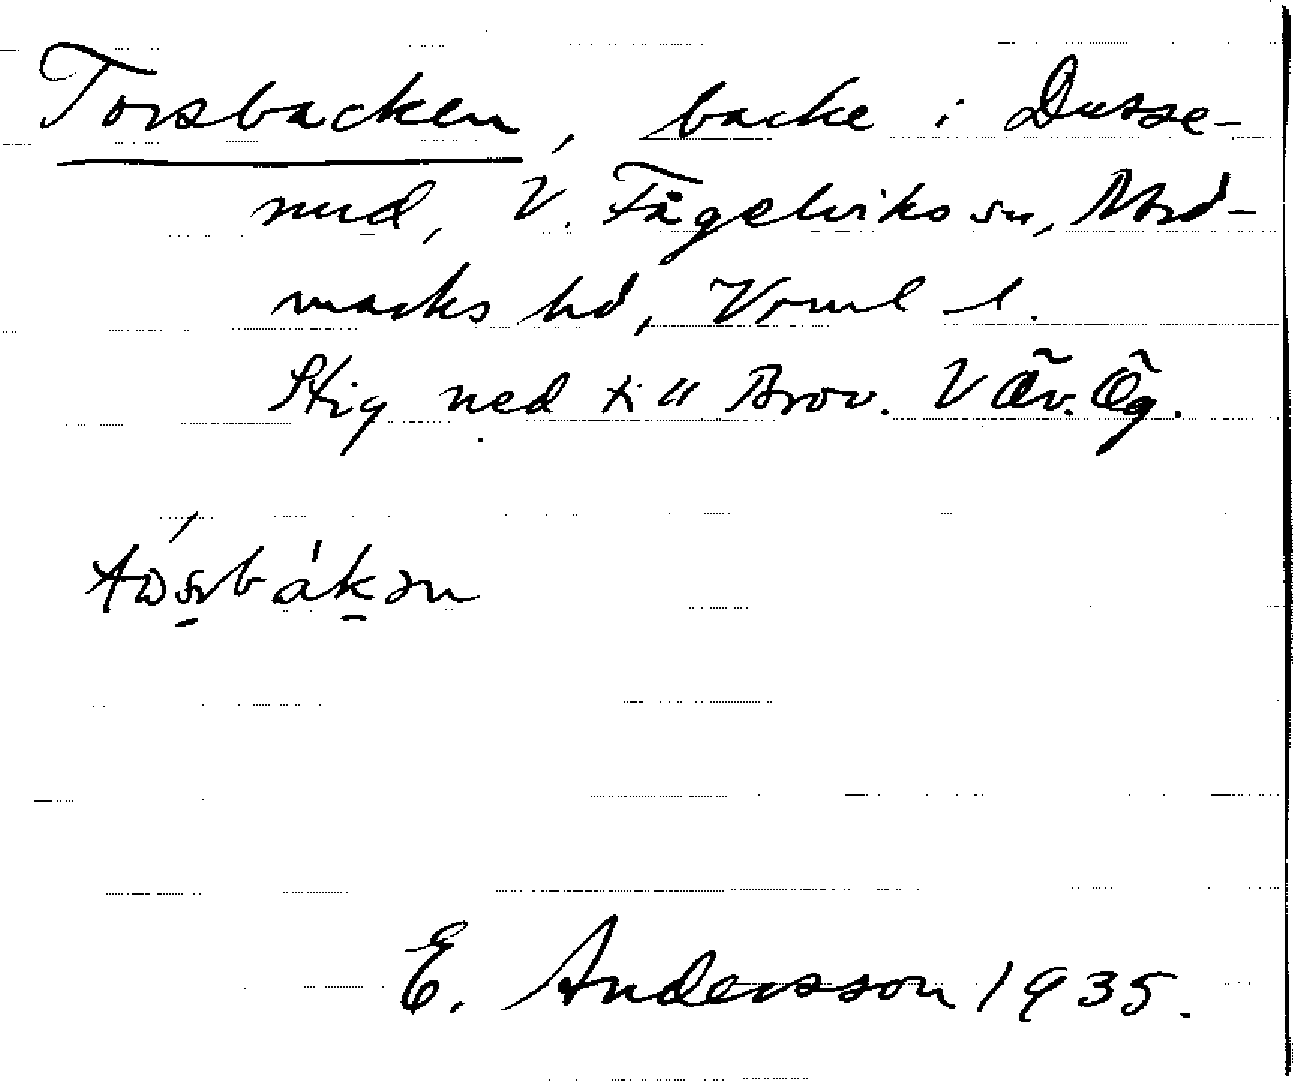 Torsbacken, backe i Dusse-
rud, V. Fågelviks sn, Nord-
marks hd, Vrml l.
Stig ned till Brov. V Öv. Ög.
E. Andersson 1935.